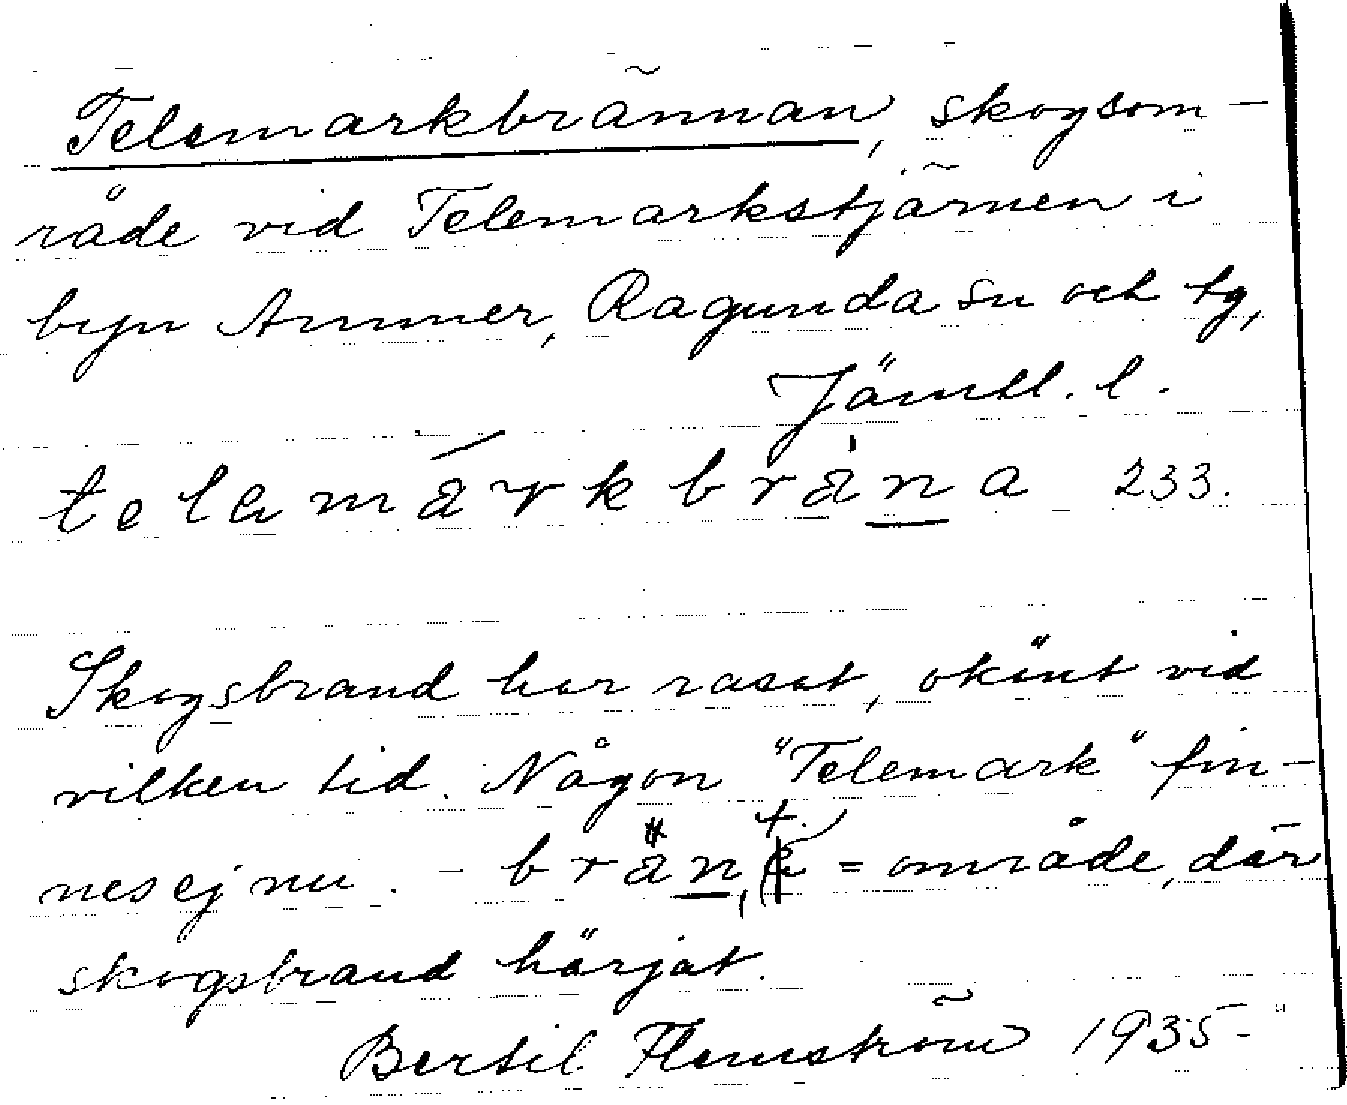 Telemarkbrännan, skogsom-
råde vid Telemarkstjärnen i
byn Ammer, Ragunda sn och tg,
Jämtl. l.
telamárkbräna 233.
Skogsbrand har rasat, okänt vid
vilken tid. Någon "Telemark" fin-
nes ej nu. - brän, f. = område, där
skogsbrand härjat.
Bertil Flemström 1935-